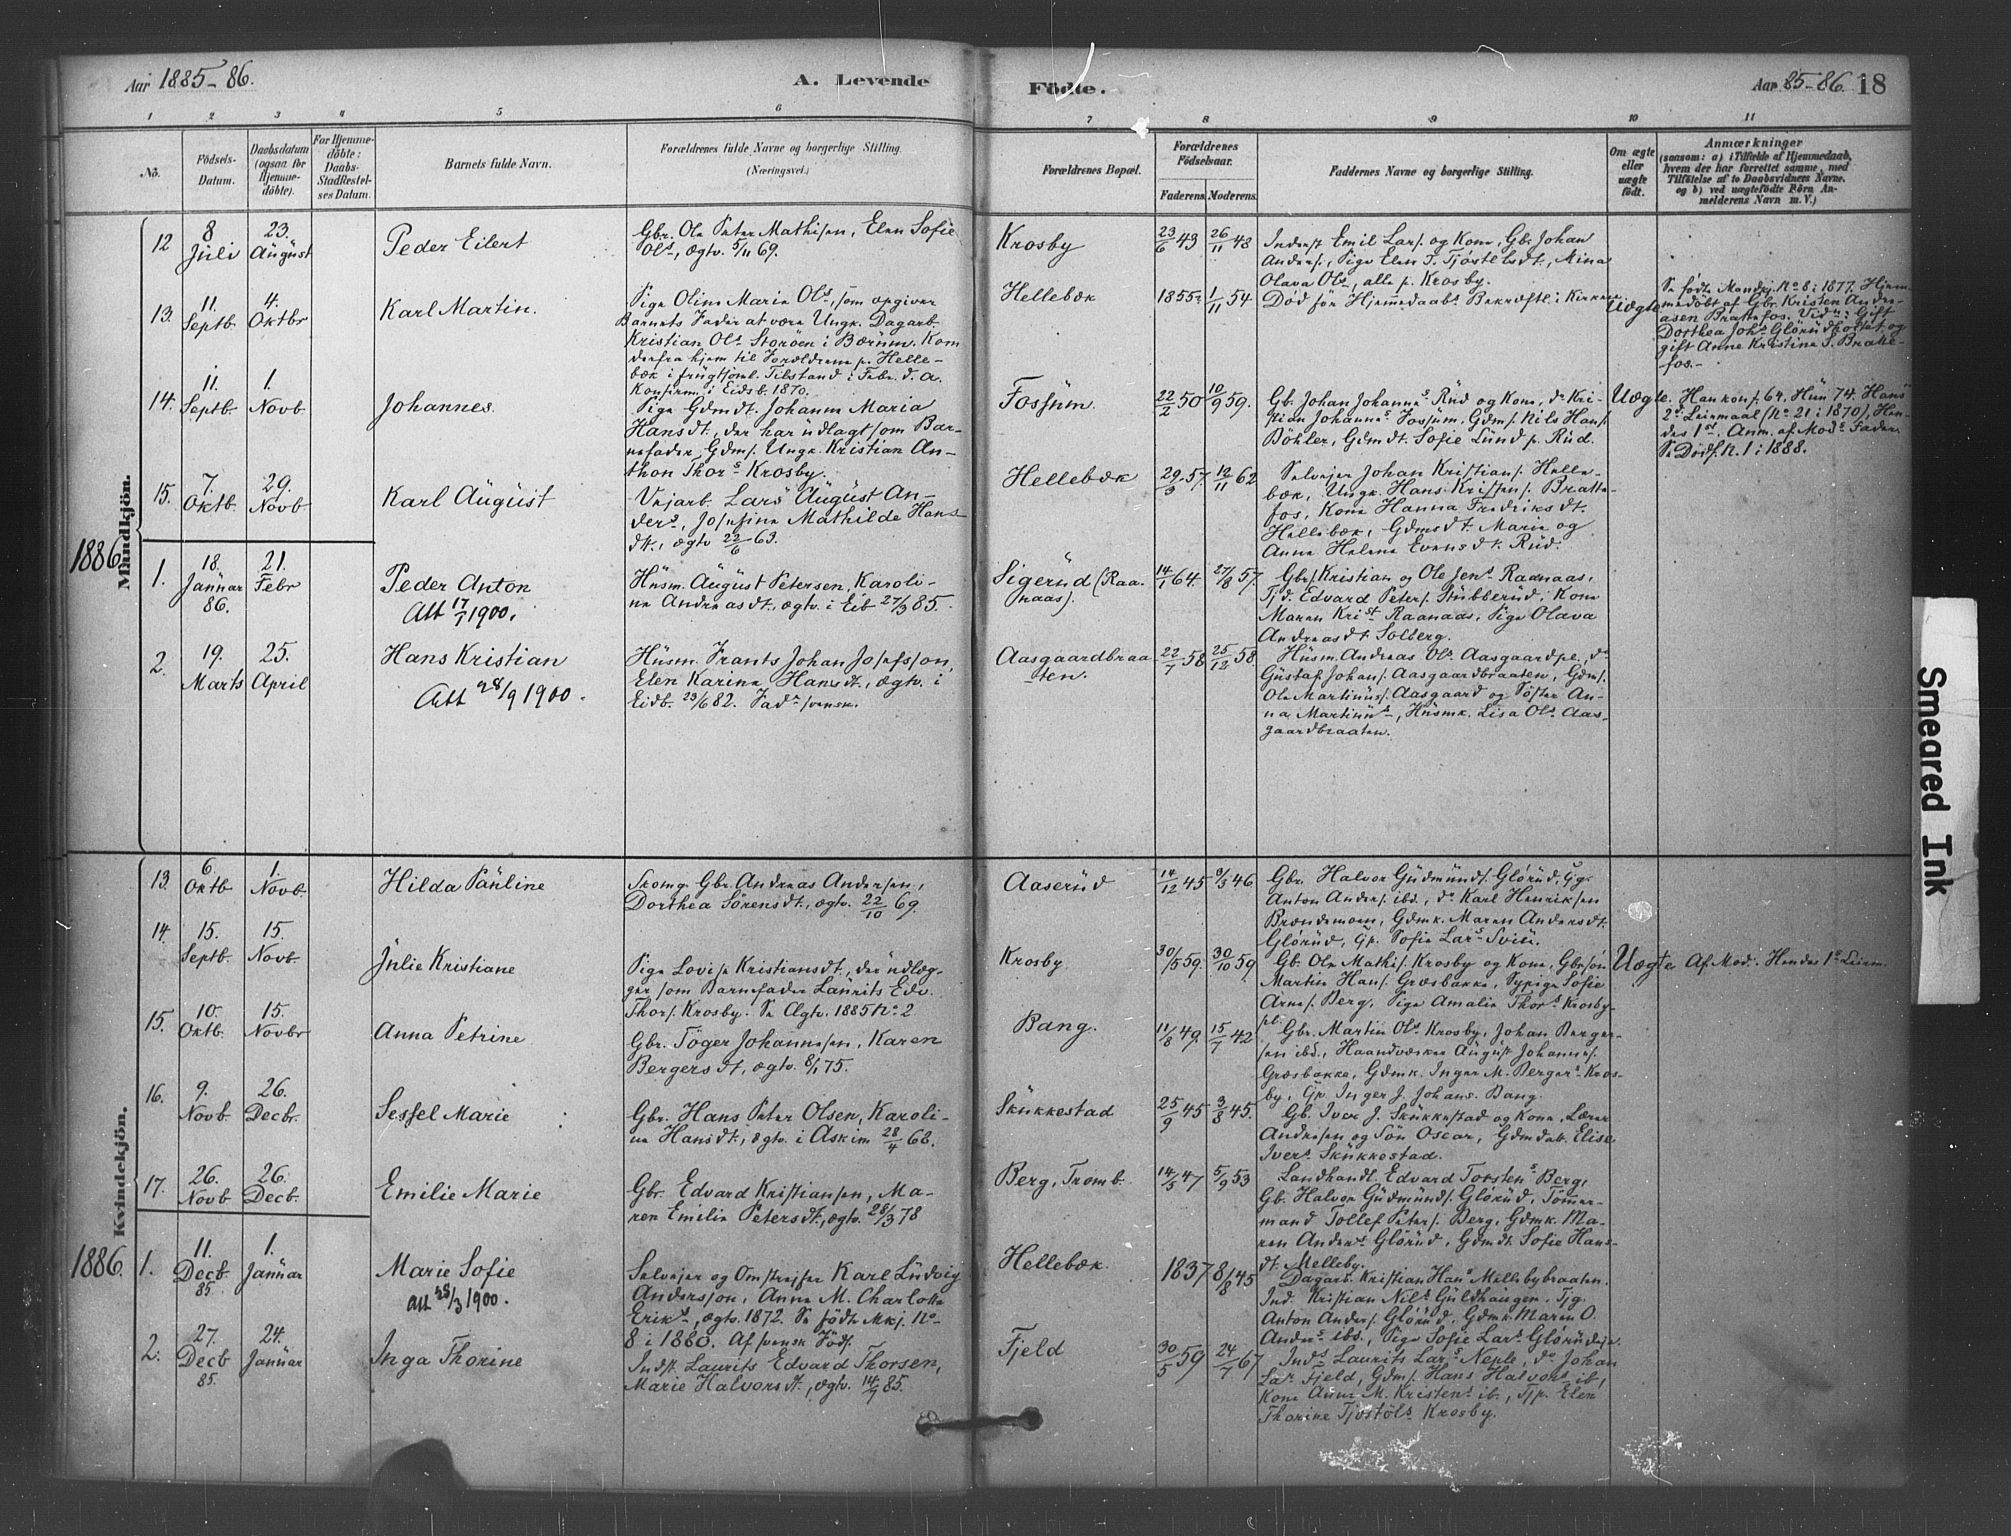 Aar 1885-86.
A. Levende
Födte.
Aar 85-86. 18
1 2 3 4 5 6 7 8 9 10 11
No.
Födsels-
Datum.
Daabsdatum
(ogsaa for
Hjemme-
döbte).
For Hjemme-
döbte:
Daabs-
Stadfæstel-
ses Datum.
Barnets fulde Navn.
Forældrenes fulde Navne og borgerlige Stilling.
(Næringsvei.)
Forældrenes Bopæl.
Forældrenes
Födselsaar.
Faderens. Moderens.
Faddernes Navne og borgerlige Stilling.
Om ægte
eller
uægte
födt.
Anmærkninger
(saasom: a) i Tilfælde af Hjemmedaab,
hvem der har forrettet samme, med
Tilföielse af to Daabsvidners Navne.
og b) ved uægtefödte Börn An-
melderens Navn m. V.)
Mandkjön.
12
8
Juli
23.
August
Peder Eilert
Gbr. Ole Peter Mathisen, Elen Sofie
Ols, ægtv. 5/11 69.
Krosby
23/6 43
26/11 48
Inderst Emil Lars. og Kone, Gbr Johan
Anders., Pige Elen T. Tjøstelsdt., Mina
Olava Ols, alle p. Krosby.
13.
11.
Septb.
4.
Oktbr
Karl Martin.
Pige Oline Marie Ols, som opgiver
Barnets Fader at være Ungk. Dagarb.
Kristian Ols. Storöen i Bærum. Kom
derfra hjem til Forældrene p. Helle-
bæk i frugtsoml. Tilstand i Febr. d. a.
Konfirm. i Eidsb. 1870.
Hellebæk
1855
1/11 54
Död för Hjemmedaabs Bekræftl. i Kirken
Uægte
Se födte Mandkj. No 8 i 1877. Hjem-
medöbt af Gbr. Kristen Andre-
asen Brattefos. Vidn: Gift
Dorthea Johs Glörud og
gift Anne Kristine S. Bratte-
fos.-
14.
11.
Septb.
1.
Novb.
Johannes.
Pige Gdmdt. Johanne Maria
Hansdt., der har udlagt som Bar-
nefader Gdms. Ungk. Kristian An-
thon Thors Krosby.
Fossum.
22/2 50
10/9 59.
Gb. Johan Johannes Rud og Kone, do Kri-
stian Johannes Fossum, Gdms. Nils Hans.
Böhler, Gdmdt. Sofie Lund p. Rud.
Uægte.
Han konf. 64. Hun 74. Hans
2d Leiermaal (No 21 i 1870), Hen-
des 1st. Anm. af Mods Fader
Se Döds. N. 1 i 1888.
15.
7.
Oktb.
29.
Novb
Karl August
Veiarb. Lars August An-
ders, Josefine Mathilde Hans-
dt., ægtv 22/6 63.
Hellebæk
29/3 57.
12/11 62
Selveier Johan Kristians. Helle-
bæk, Ungk. Hans Kristens. Bratte-
fos, Kone Hanna Fredriksdt.
Hellebæk, Gdmsdt. Marie og
Anne Helene Evensdt. Rud.
1886
1.
18.
Januar
86.
21.
Febr
Peder Anton
Att 17/7 1900.
Husm. August Petersen, Karoli-
ne Andreasdt., ægtv. i Eib 27/3 85.
Sigerud (Raa-
naas).
14/1 64.
27/8 57.
Gbr. Kristian og Ole Jens. Raanaas,
Tj d. Edvard Peters. Stubberud, Kone
Maren Krist Raanaas, Pige Olava
Andreasdt. Solberg.
2.
19.
Marts
25.
April
Hans Kristian
Att 28/9 1900.
Husm. Frants Johan Josefsson,
Elen Karine Hansdt., ægtv. i
Eidb. 23/6 82. Fadn svensk.
Aasgaardbraa-
ten.
22/7 58
25/12 58.
Husm. Andreas Ols. Aasgaardpl., do
Gustaf Johans. Aasgaardbraaten, Gdms.
Ole Martinus. Aasgaard og Söster An-
na Martinus, Husmk. Lisa Ols. Aas-
gaardbraaten.
Kvindekjön.
13.
6
Oktb
1.
Novb.
Hilda Pauline
Skomg. Gbr. Andreas Andersen,
Dorthea Sörensdt., ægtv. 22/10 69.
Aaserud
14/12 45
9/3 46
Gbr. Halvor Gudmunds. Glörud, Gg.
Anton Anders. ibd., do Karl Henriksen
Brændemoen, Gdmk. Maren Andersdt.
Glörud, Gp. Sofie Lars Sviu.
14.
15.
Septb.
15.
Novb.
Julie Kristiane
Pige Lovise Kristiansdt., der udlæg-
ger som Barnefader Laurits Edv.
Thors. Krosby. Se Ægtv. 1885 No 2
Krosby
30/5 59.
30/10 59
Gb. Ole Mathis. Krosby og Kone, Gbrsön
Martin Hans. Græsbakke, Sypige Sofie
Arnes. Berg, Pige Amalie Thors Krosby-
pl.
Uægte
Af Mod. Hendes 1e Leierm.
15.
10.
Oktb.
15.
Novbr
Anna Petrine
Gbr. Töger Johannesen, Karen
Bergersdt., ægtv. 8/1 75.
Bang.
11/8 49.
15/7 42
Gbr. Martin Ols. Krosby, Johan Berger-
sen ibd., Haandværker August Johannes.
Græsbakke, Gdmk. Inger M. Bergers Kros-
by, Gp. Inger J. Johans. Bang.
16.
9.
Novb.
26.
Decbr.
Sessel Marie
Gbr. Hans Peter Olsen, Karoli-
ne Hansdt., ægtv. i Askim 28/4 68.
Skukkestad
25/9 45
3/8 45.
Gb. Iver J. Skukkestad og Kone, Lærer
Andresen og Sön Oscar, Gdmdatt. Elise
Ivers. Skukkestad.
17.
26.
Novb
26.
Decb.
Emilie Marie
Gbr. Edvard Kristiansen, Ma-
ren Emilie Petersdt., ægtv. 28/3 78
Berg, Tromb.
14/5 47
5/9 53
Landhandl. Edvard Torstens Berg,
Gb. Halvor Gudmunds. Glörud, Tömer-
mand Tollef Peters. Berg, Gdmk. Ma-
ren Anders Glörud, Gdmdt. Sofie Hans-
dt. Melleby.
1886.
1.
11.
Decb.
85.
1.
Januar
Marie Sofie
Att 25/3 1900.
Selveier og Omstreifer Karl Ludvig
Andersson, Anna M. Charlotte
Eriks, ægtv. 1872. Se födte Mkj. No
8 i 1880. Af svensk Föds.
Hellebæk
1837
8/8 45
Dagarb. Kristian Hans Mellebybraaten.
Ind. Kristian Nils Guldhaugen, Tjg.
Anton Anders. Glörud, Gdmk. Maren O.
Anders ibs., Pige Sofie Lars. Glörudeje
2.
27.
Decb
85.
24.
Januar
Inga Thorine
Indst. Laurits Edvard Thorsen,
Marie Halvorsdt., ægtv. 14/9 85.
Fjeld
30/5 59
24/7 67
Inds Laurits Lars Neple, do Johan
Lars Fjeld, Gdms. Hans Halvors ib.,
Kone Anne M. Kristens ib., Tjp. Elen
Thorine Tjøstöls Krosby.
Smeared Ink